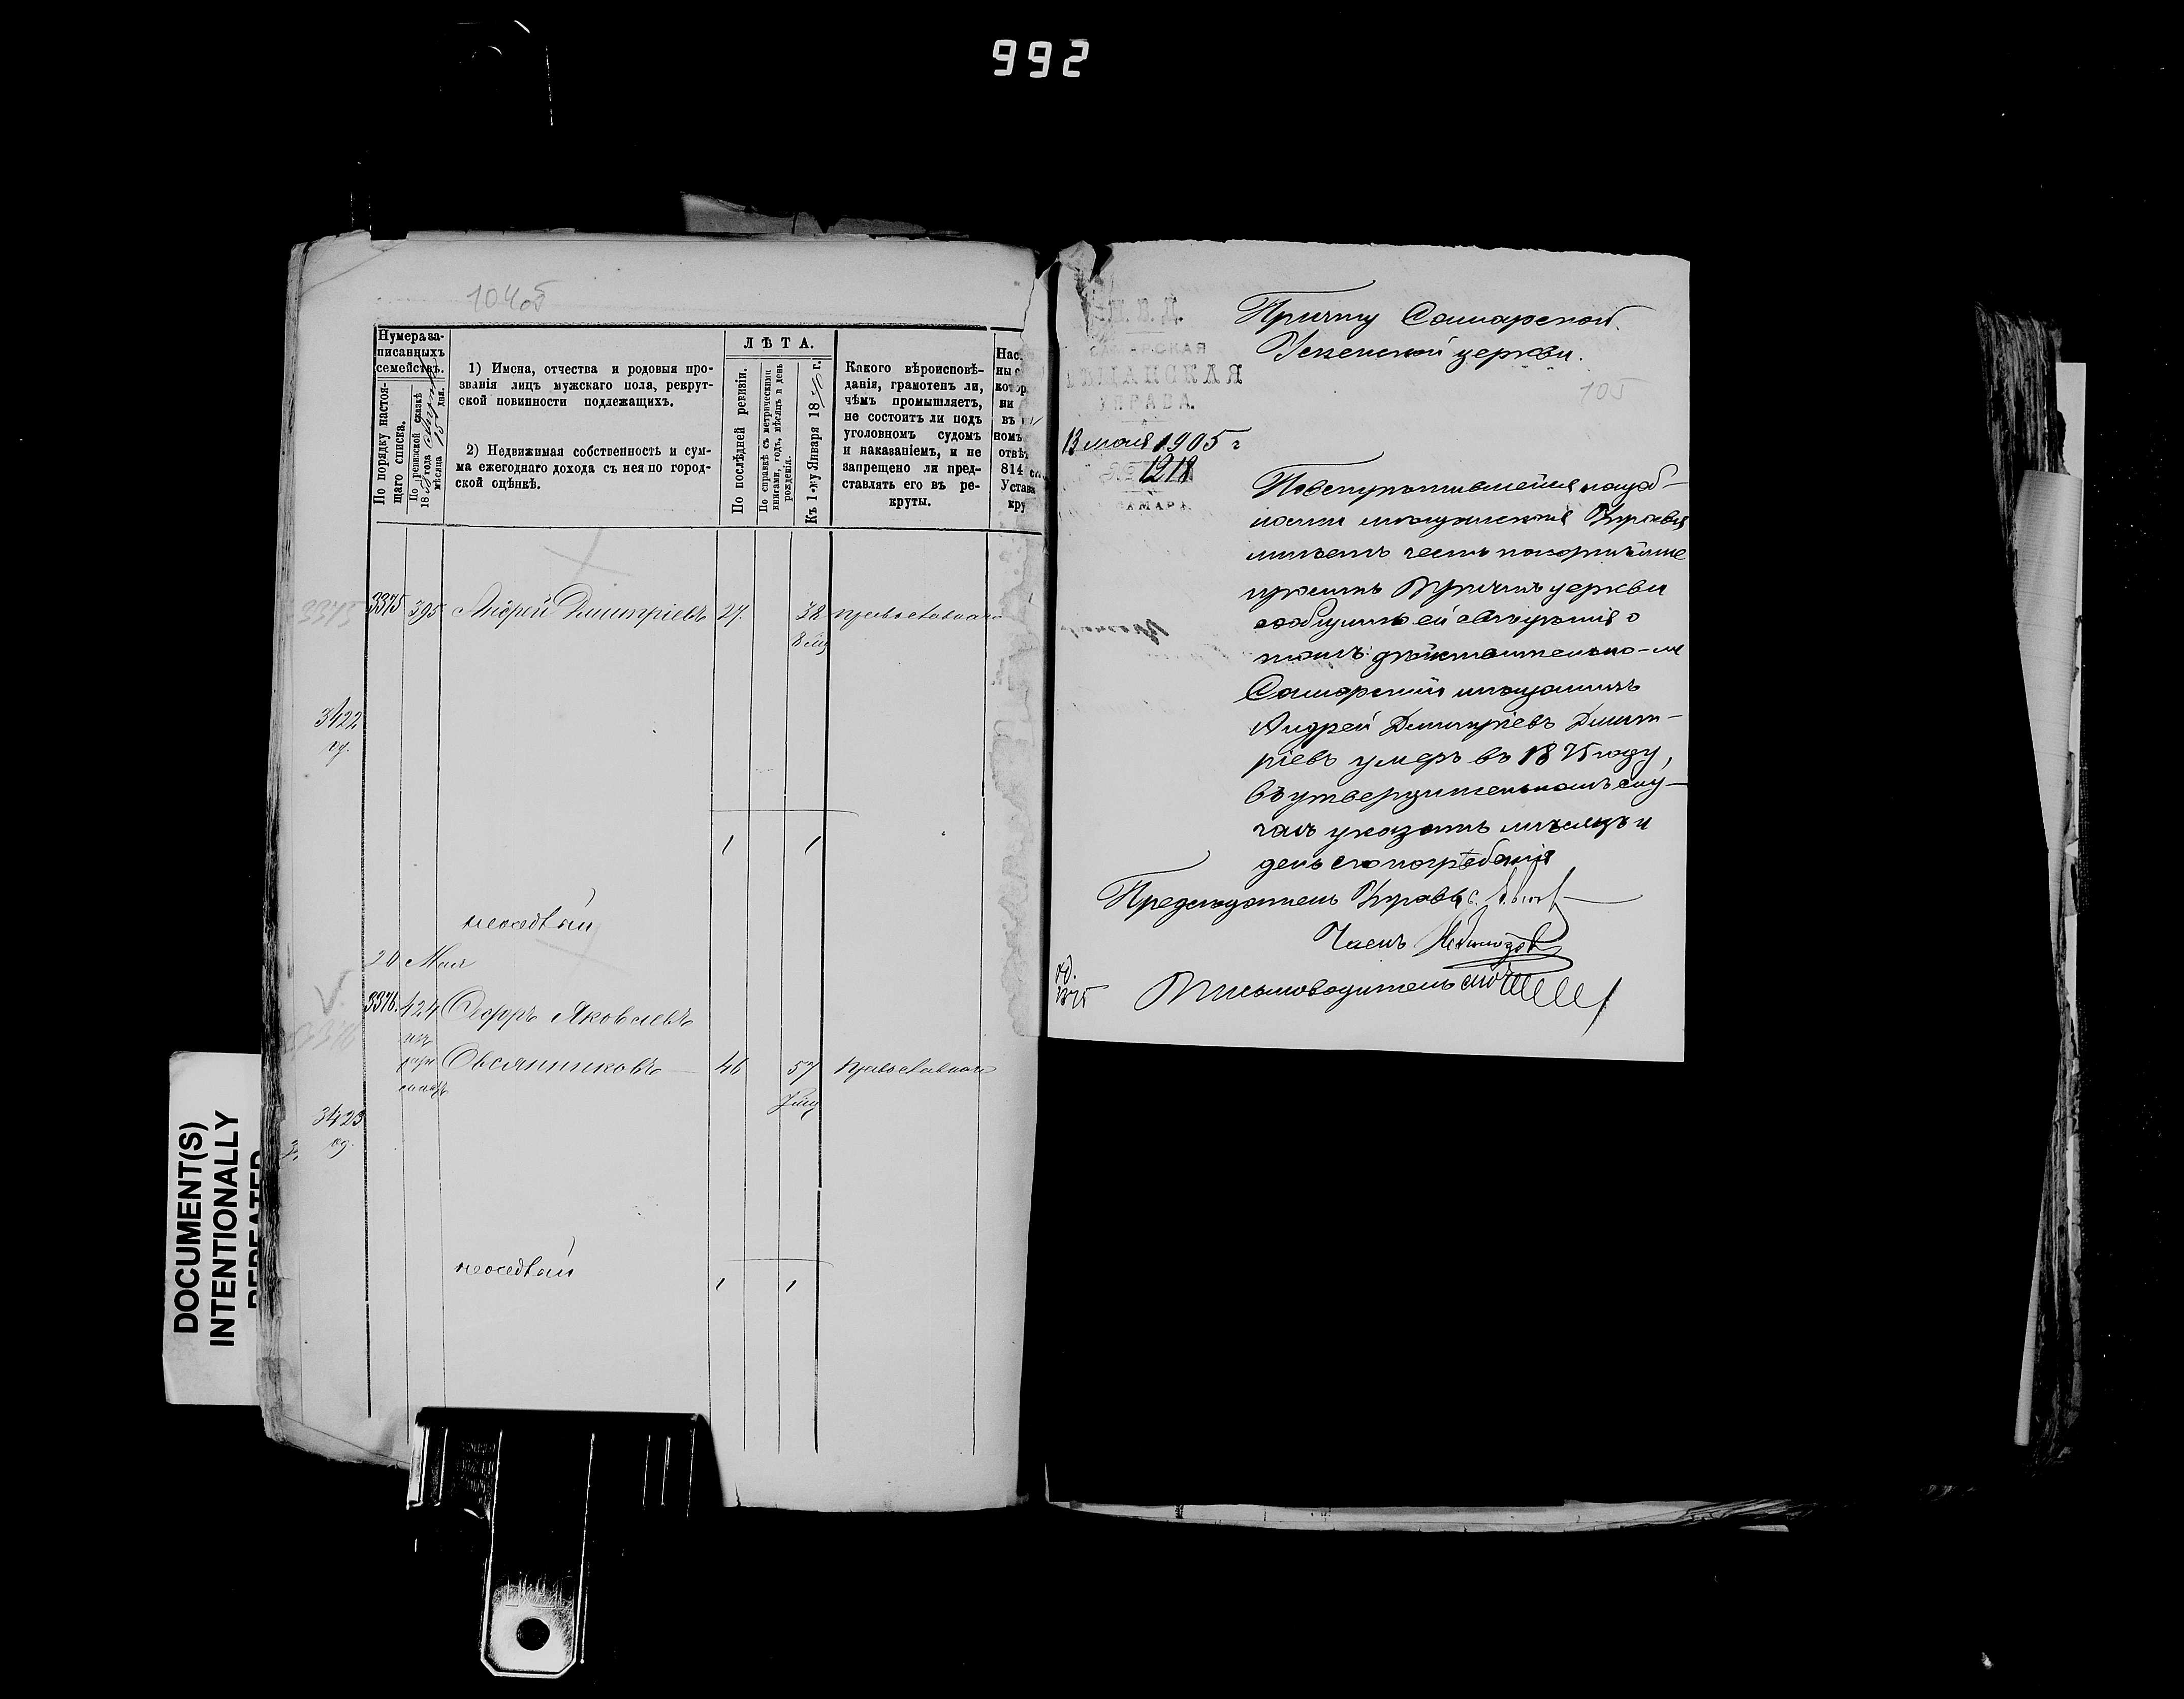 992
104об
Нумера записанныхъ семействъ.
По порядку настоящаго списка.
По ревизской сказкѣ 18 года мѣсяца 15 дня.
1) Имена, отчества и родовыя прозванія лицъ мужскаго пола, рекрутской повинности подлежащихъ.
2) Недвижимая собственность и сумма ежегоднаго дохода съ нея по городской оцѣнкѣ.
ЛѢТА.
По послѣдней ревизіи.
По справкѣ съ метрическими книгами, годъ, мѣсяцъ и день рожденія.
Къ 1-му Января 18 г.
Какого вѣроисповѣданія, грамотенъ ли, чѣмъ промышляетъ, не состоитъ ли подъ уголовномъ судомъ и наказаніемъ, и не запрещено ли представлять его въ рекруты.
3375 3375 395 Андрей Дмитріевъ 27. 38 православнаго
3422
1 1
неосѣдлый
20 Мая
3376. 424 Яковлевъ
Овсянниковъ 46 57 православнаго
3423
неосѣдлый
1 1
DOCUMENT(S)
INTENTIONALLY
REPEATED
М. В. Д.
САМАРСКАЯ
МѢЩАНСКАЯ
УПРАВА.
13 мая 1905 г
№ 1218
САМАРА.
Причту Самарской
Успенской церкви.
105
По встрѣтившейся надоб-
ности мѣщанская Управа
имѣетъ честь покорнѣйше
просить Причтъ церкви
сообщить ей свѣдѣнія о
томъ: дѣйствительно-ли
Самарскій мѣщанинъ
Андрей Дмитріевъ Дмит-
ріевъ умеръ въ 1875 году,
въ утвердительномъ слу-
чаѣ указать мѣсяцъ и
день его погребенія
Предсѣдатель Управы
Членъ
Письмоводитель